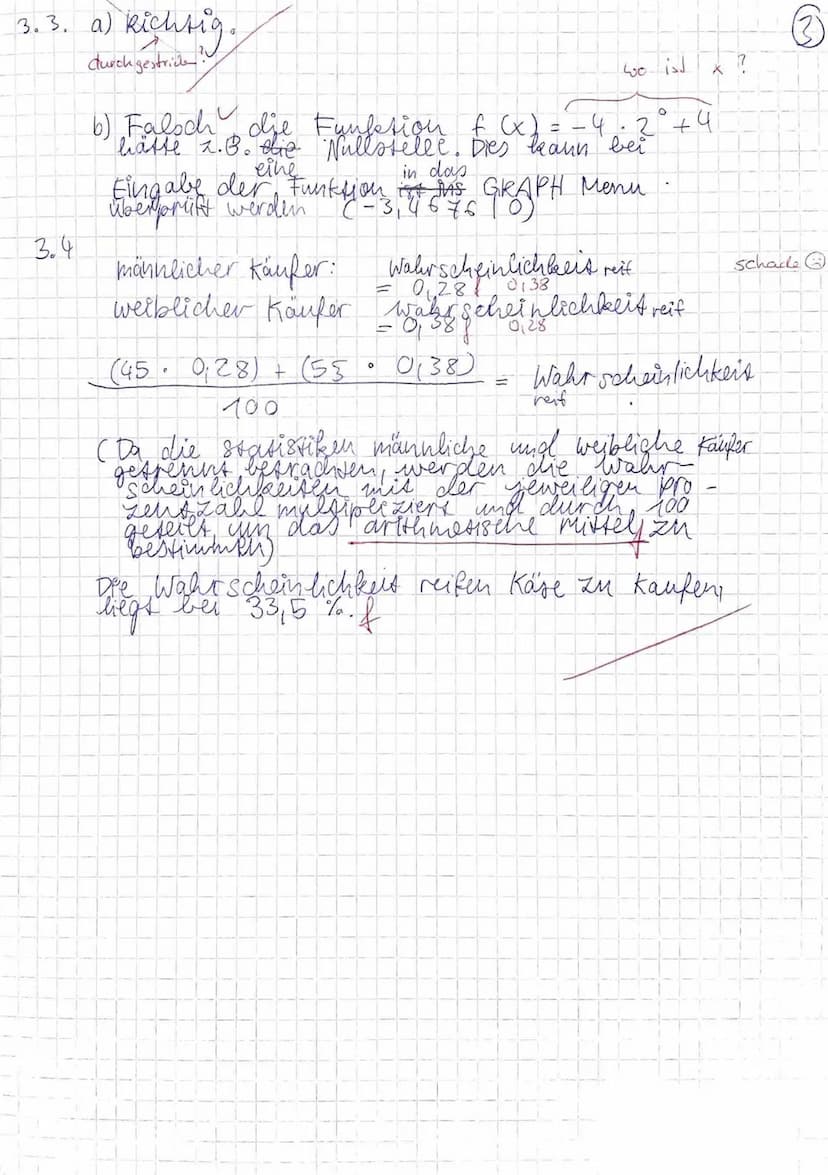 3.3. a) Richtig. 3
durchgestrichen?
wo ist x ?
b) Falsch, die Funktion f(x) = -4 · 2° + 4
hätte z.B. die Nullstelle. Dies kann bei
eine in das
Eingabe der Funktion ist ins GRAPH Menu
überprüft werden (-3,4676 | 0)
3.4
männlicher Käufer: Wahrscheinlichkeit reif schade ☹
= 0,28 f 0,38
weiblicher Käufer Wahrscheinlichkeit reif
= 0,38 f 0,28
(45 · 0,28) + (55 · 0,38) = Wahrscheinlichkeit
100 reif
(Da die statistiken männliche und weibliche Käufer
getrennt betrachten, werden die Wahr-
scheinlichkeiten mit der jeweiligen Pro-
zentzahl multipliziert und durch 100
geteilt um das arithmetische Mittel f zu
bestimmen)
Die Wahrscheinlichkeit reifen Käse zu kaufen,
liegt bei 33,5 %. f